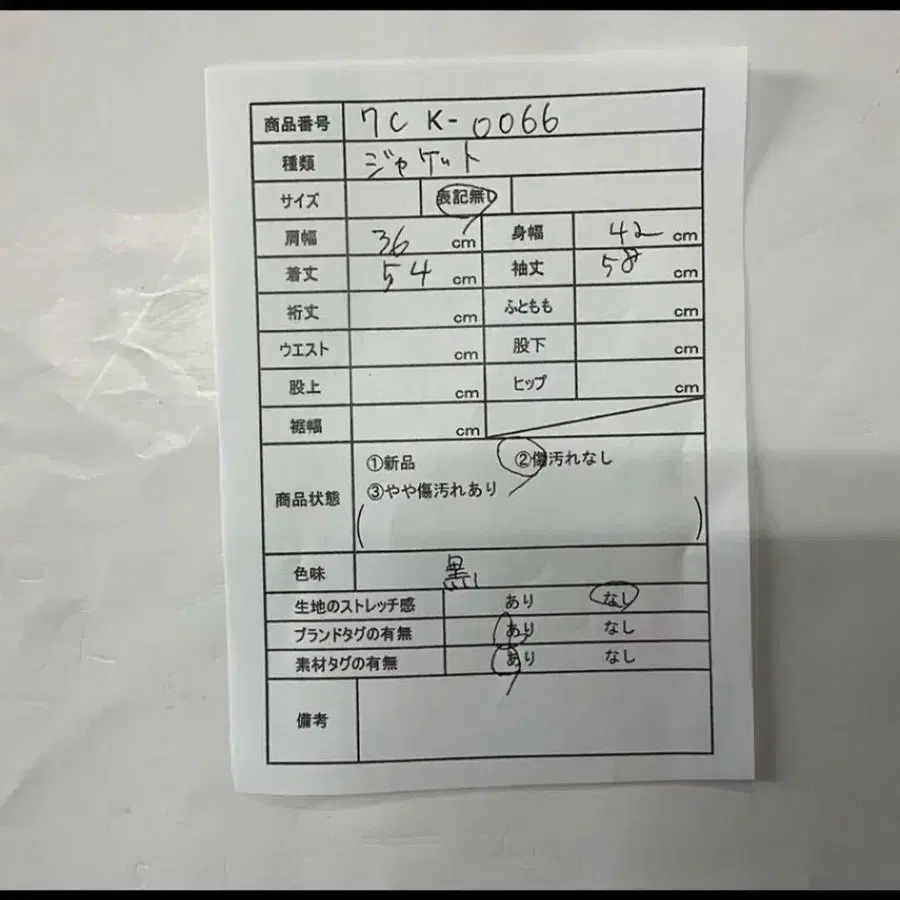 商品番号 7C K-0066
種類 ジャケット
サイズ 表記無し
肩幅 36 cm 身幅 42 cm
着丈 54 cm 袖丈 58 cm
裄丈 cm ふともも cm
ウエスト cm 股下 cm
股上 cm ヒップ cm
裾幅 cm
商品状態 ①新品 ②傷汚れなし
③やや傷汚れあり
( )
色味 黒
生地のストレッチ感 あり なし
ブランドタグの有無 あり なし
素材タグの有無 あり なし
備考